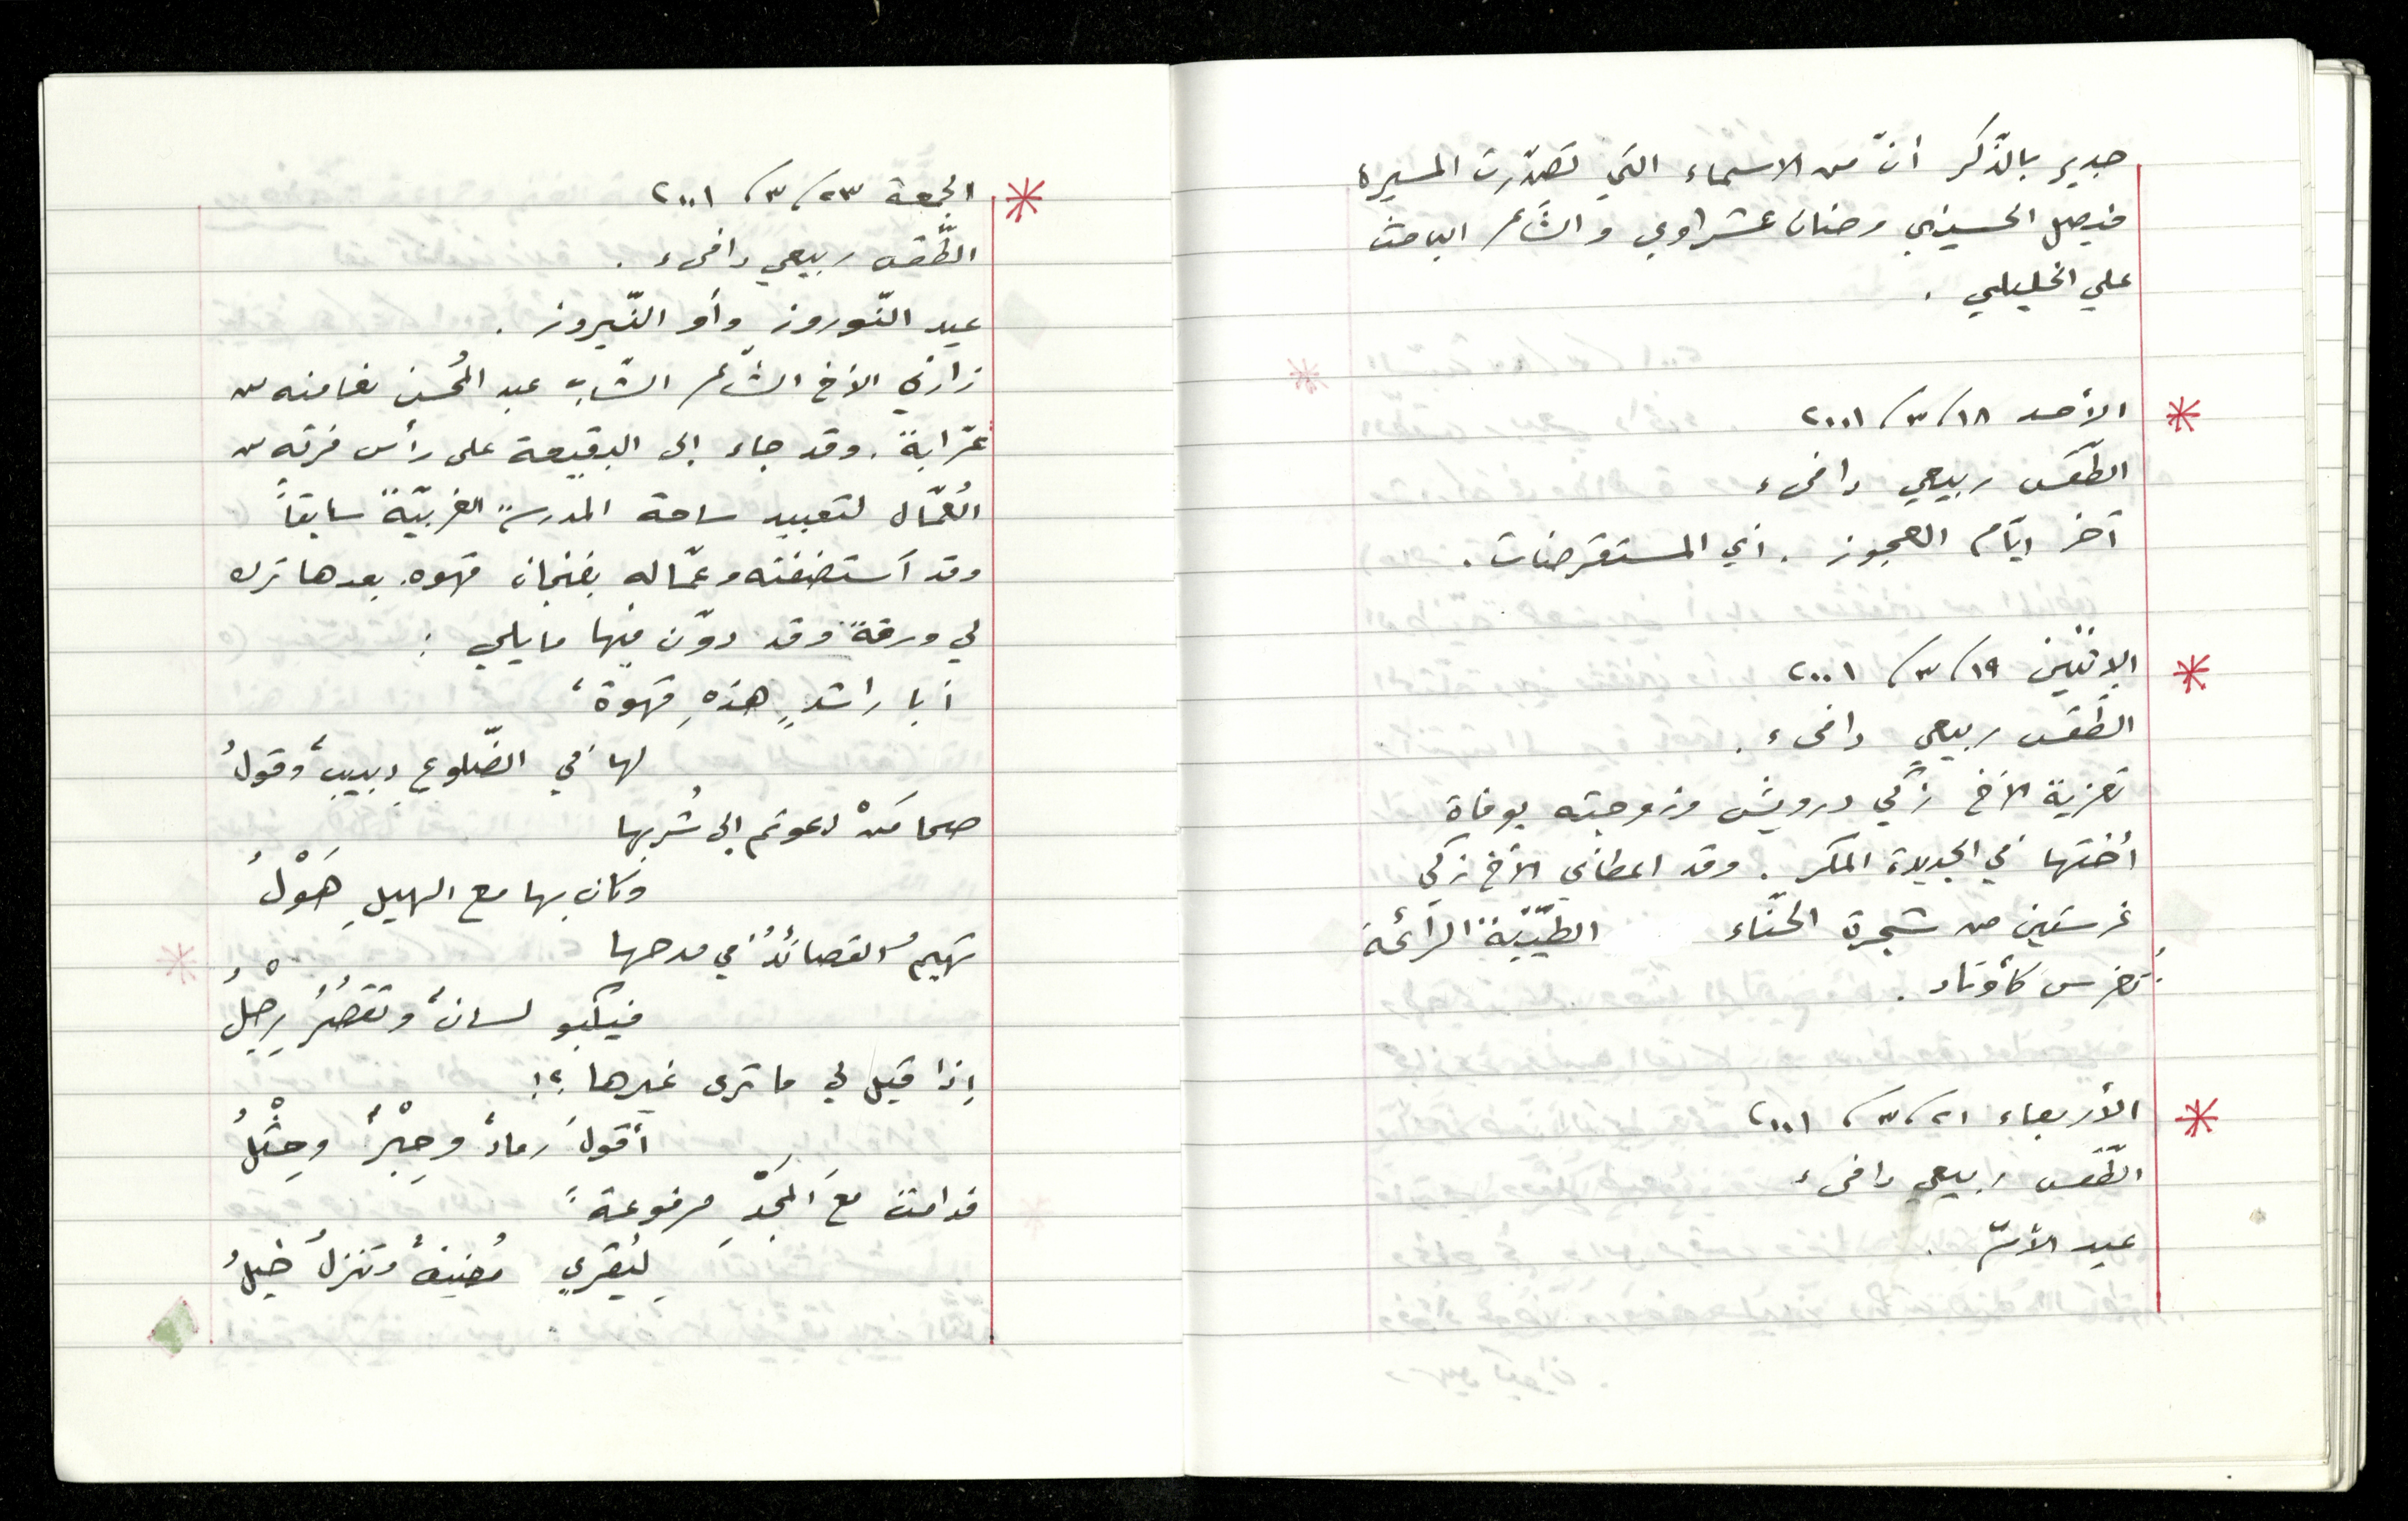 جدير بالذّكر أنّ من الاسماء التي تصدّرت المسيرة
فيصل الحسيني وحنان عشراوي والشّاعر الباحث
علي الخليلي .
* الأحد ١٨/٣/٢٠٠١
الطّقس ربيعي دافىء
آخر ايّام العجوز . أي المستقرضات .
* الاثنين ١٩/٣/٢٠٠١
الطّقس ربيعي دافىء .
تعزية الأخ زكي درويش وزوجته بوفاة
أختها في الجديدة المكر . وقد اعطاني الأخ زكي
غرستين من شجرة الحنّاء الطيّبة الرائحة
تُغرس كأوتاد .
* الأربعاء ٢١/٣/٢٠٠١
الطّقس ربيعي دافىء
عيد الأمّ .
* الجمعة ٢٣/٣/٢٠٠١
الطّقس ربيعي دافىء .
عيد النّوروز وأو النّيروز .
زارني الأخ الشّاعر الشّاب عبد المُحسن نعامنه من
عرّابة . وقد جاء إلى البقيعة على رأس فرقه من
العُمّال لتعبيد ساحة المدرسة الغربيّة سابقاً
وقد آستضفته وعمّاله بفنجان قهوه. بعدها ترك
لي ورقةً وقد دوّن فيها ما يلي :
أبا راشدٍ هذهِ قهوةٌ
لها في الضّلوعِ دبيبٌ وقولُ
صحا مَنْ دعوتم إلى شُربها
وكان بها مع الهيلِ هَوْلُ
تهيمُ القصائدُ في مدحها
فيكبو لسانٌ وتقصُرُ رِجْلُ
إذا قيل لي ما ترى غيرها ؟!
أقولُ رمادٌ وحِبْرٌ وحِثْلُ
فدامت معَ المَجْدِ مرفوعةً
لِيُقري مُضيفٌ وتنزلُ خيلُ